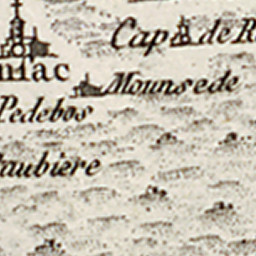 Cap de R
niac
Mounsede
Pedebos
aubiere